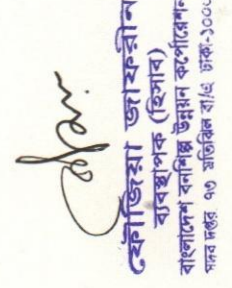 ফৌজিয়া জাফরীন
ব্যবস্থাপক (হিসাব)
বাংলাদেশ বনশিল্প উন্নয়ন কর্পোরেশন
সদর দপ্তর ৭৩ মতিঝিল বা/এ ঢাকা-১০০০